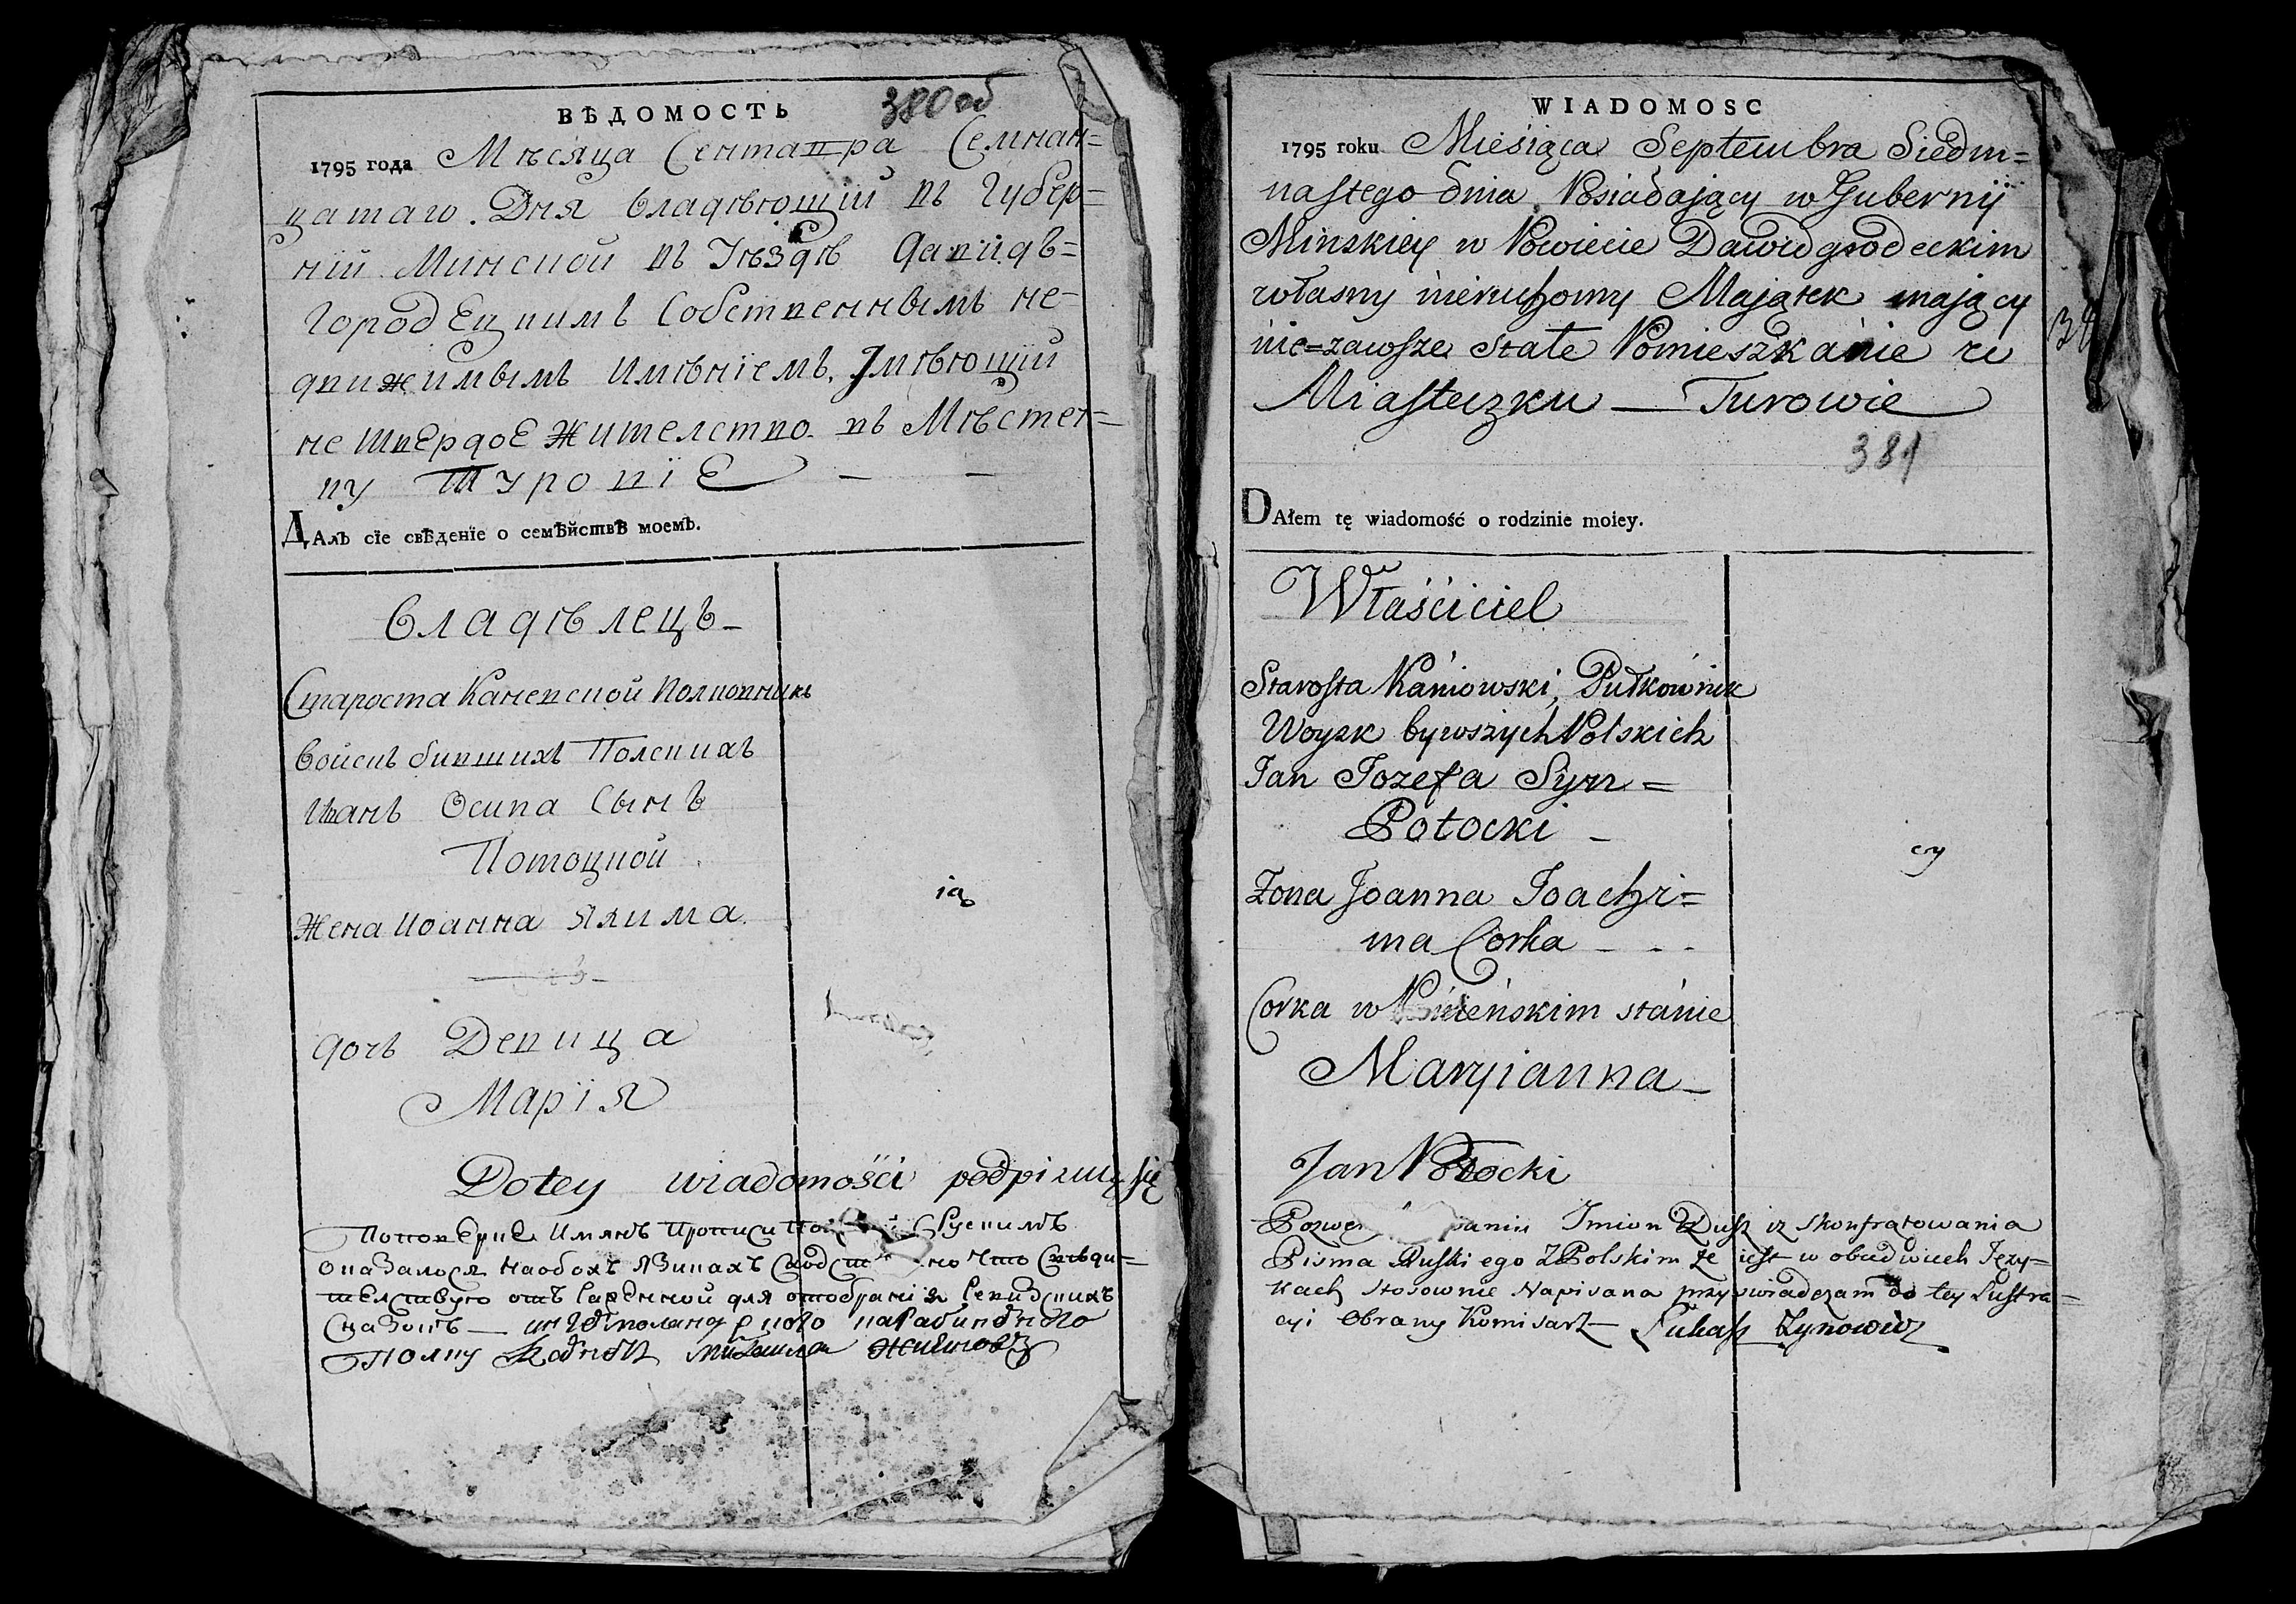 ВѢДОМОСТЬ
380об
1795 года Мѣсяца Сентапра Семнан=
цатаго Дня Владѣющій въ Губер=
ній Минской въ Уѣздѣ Давидъ=
Городецкимъ Собственнымъ не=
движимымъ имѣніемъ, Имѣющій
не твердое жителство въ Мѣстеч=
ку Туровіе — —
ДАлъ сїе свѣденїе о семѣйствѣ моемъ.
Владѣлецъ —
Староста Каневской Полковникъ
Войскъ бившихъ Полскихъ
Иванъ Осипа Сынъ
Потоцкой
Жена Иоанна Якима
іą
дочъ Девица
Марія
Dotey wiadomości podpisuię się
Поповерце Имянъ Прописи Рускимъ
оказалося на обохъ язикахъ что свѣди=
телствую отъ для отобранія Ревизскихъ
Сказокъ —
WIADOMOSC
1795 roku Miesiąca Septembra Siedm=
nastego dnia Posiadaiący w Gubernij
Minskiey w Powiecie Dawidgrodeckim
własny nieruchomy Maiątek maiący
nie=zawsze stałe Pomieszkanie w
Miasteczku — Turowie
381
DAłem tę wiadomość o rodzinie moiey.
Właściciel
Starosta Kaniowski, Pułkownik
Woysk bywszych Polskich
Jan Jozefa Syn =
Potocki —
Żona Joanna Joachi=
ma Corka — - -
cy
Corka w Panieńskim stanie
Maryianna —
Jan Potocki
Imion Dusz iz skonfrątowania
Pisma Ruskiego z Polskim że iest w obudwuch Ięzy=
kach stosownie Napisana przyswiadczam do tey Lustra=
cyi Obrany Komisarz — Łukasz Zynowicz